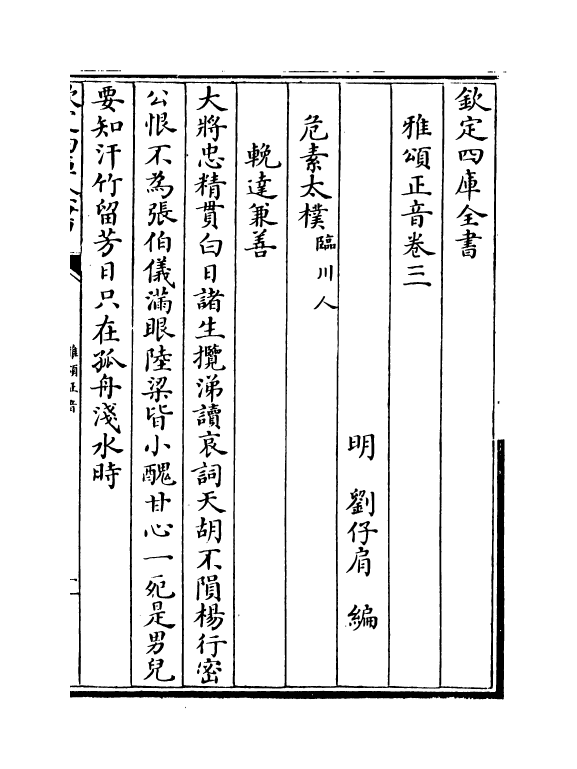 欽定四庫全書
雅頌正音卷三
明 劉仔肩 編
危素太樸臨川人
輓達兼善
大將忠精貫白日諸生攬涕讀哀詞天胡不隕楊行密
公恨不為張伯儀滿眼陸梁皆小醜甘心一死是男兒
要知汗竹留芳日只在孤舟淺水時
欽定四庫全書
雅頌正音